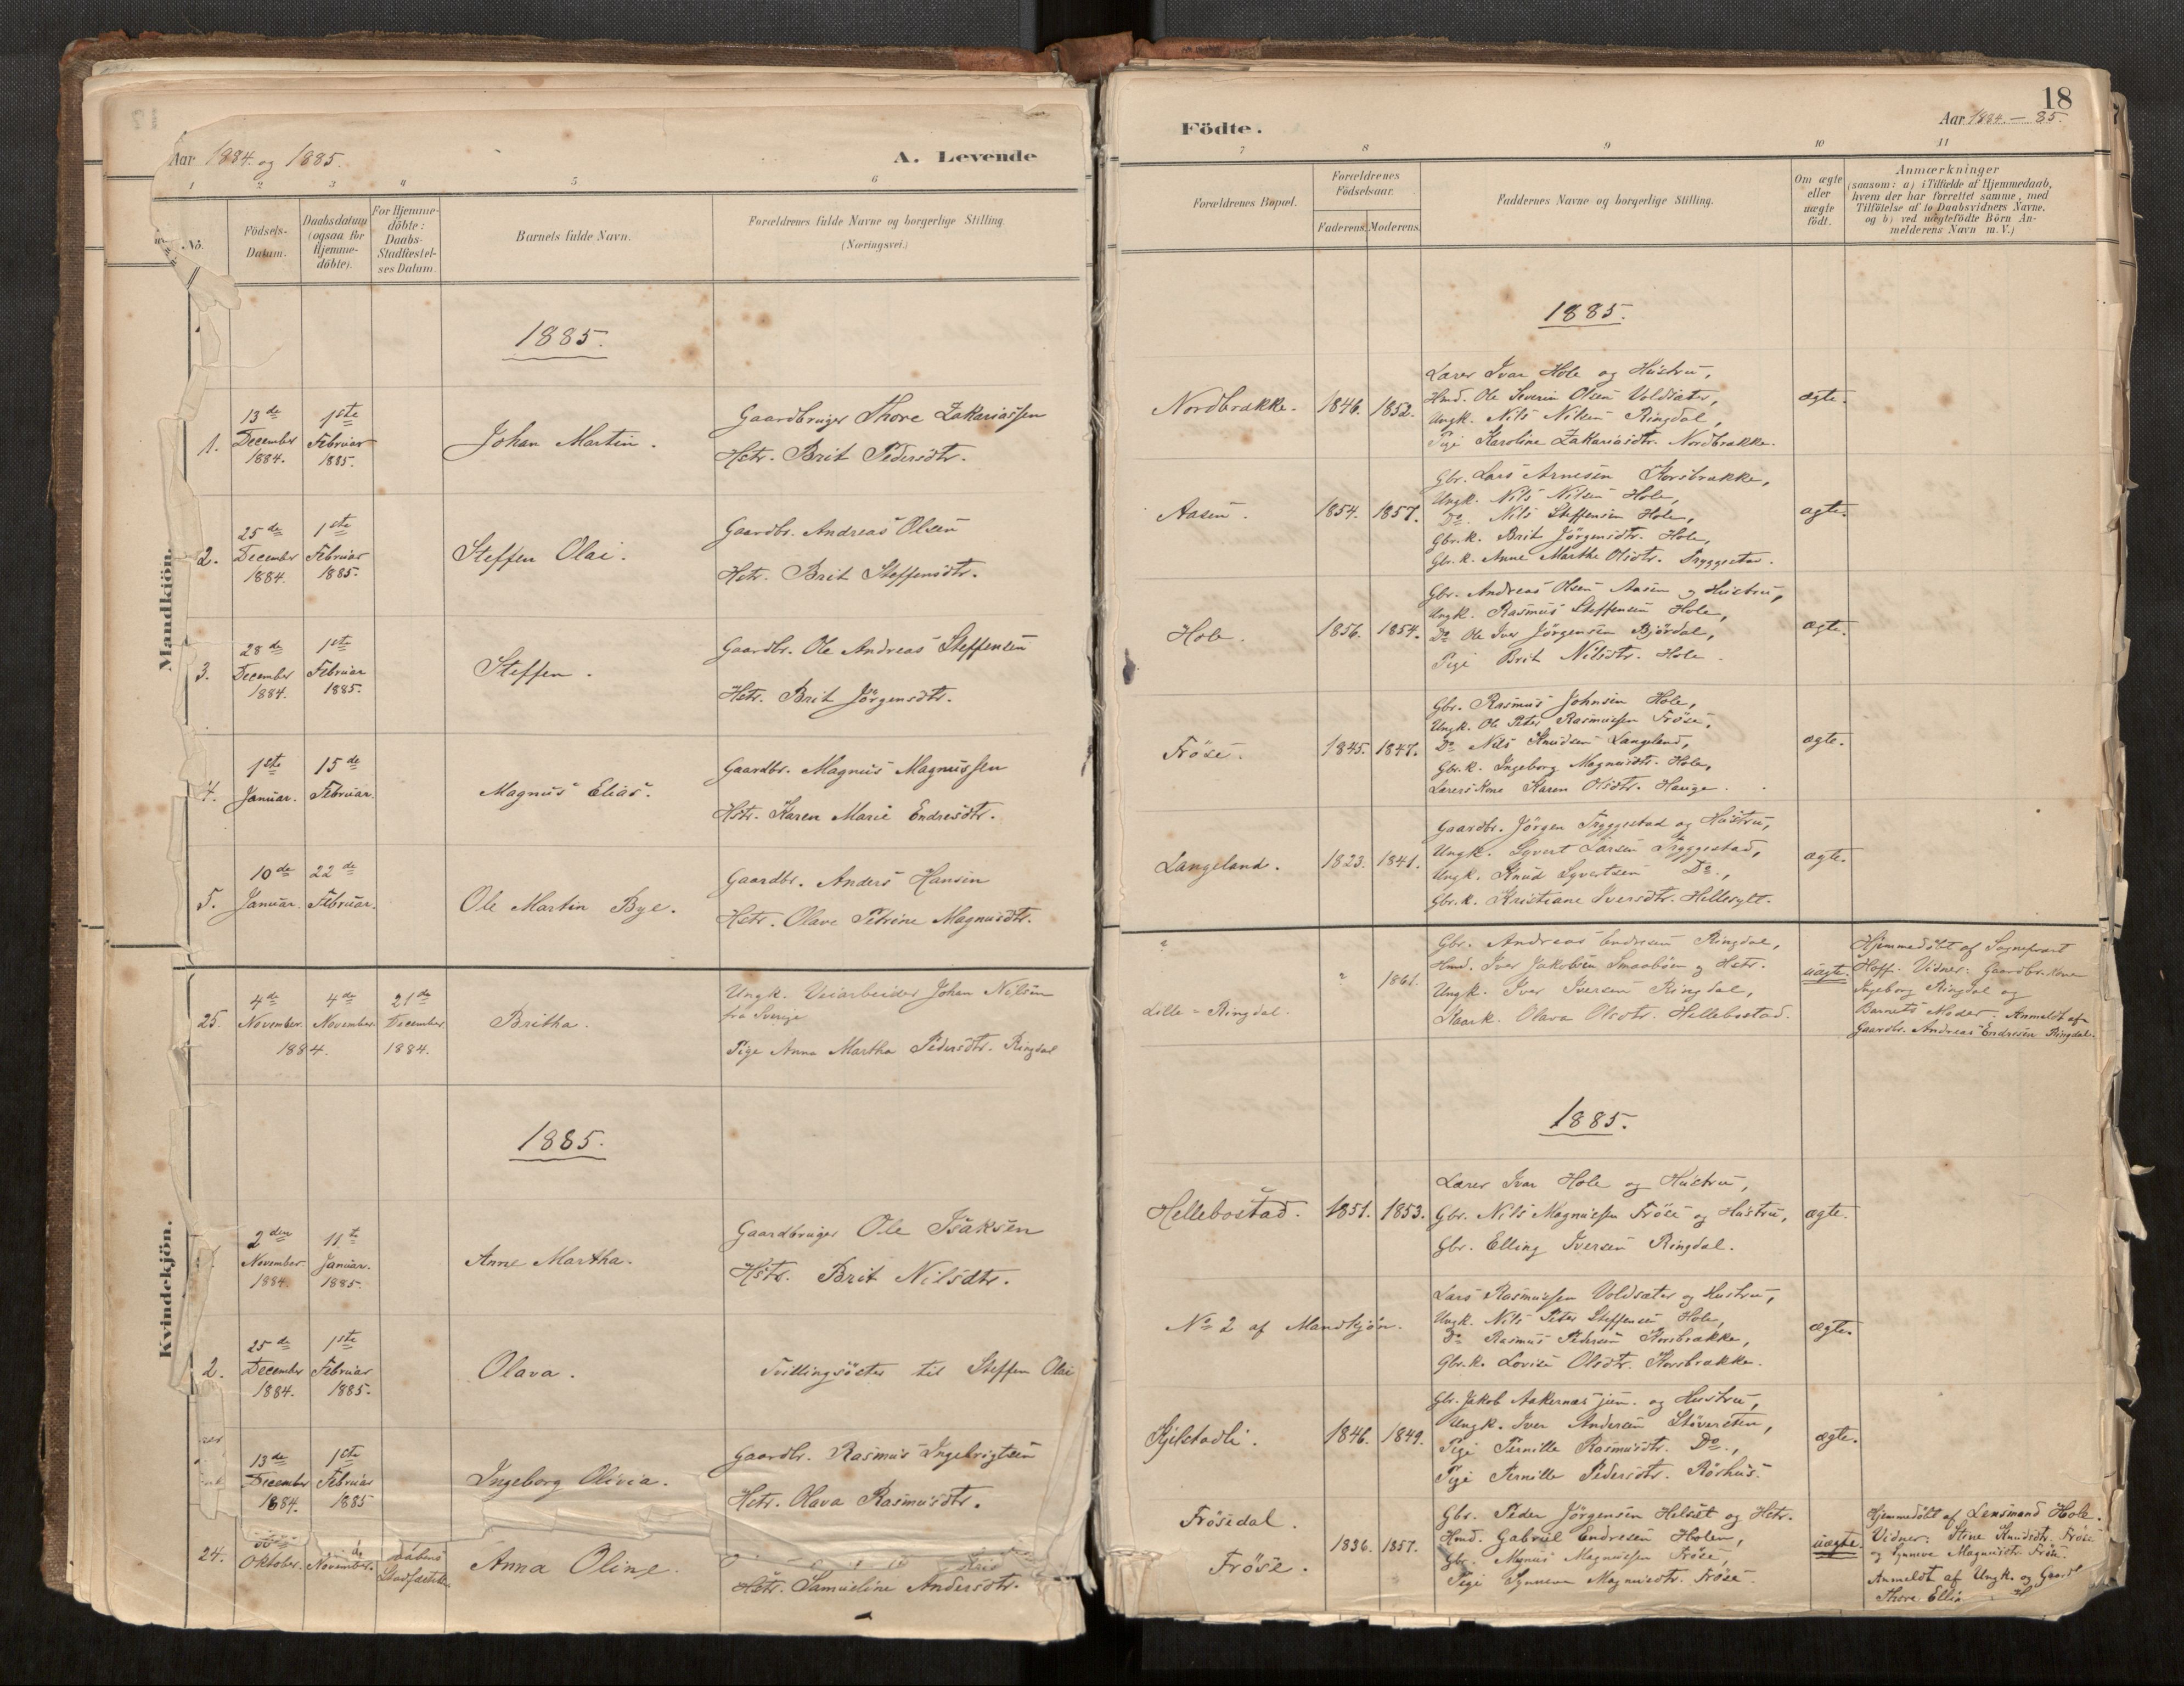 Aar 1884. og 1885.
A. Levende
1 2 3 4 5 6
No.
Födsels-
Datum.
Daabsdatum
(ogsaa for
Hjemme-
döbte).
For Hjemme-
döbte:
Daabs-
Stadfæstel-
ses Datum.
Barnets fulde Navn.
Forældrenes fulde Navne og borgerlige Stilling.
(Næringsvei.)
Mandkjön.
1885.
1.
13de
December
1884.
1ste
Februar
1885.
Johan Martin.
Gaardbruger Thore Zakariassen
Hstr. Brit Pedersdtr.
2.
25de
December
1884.
1ste
Februar
1885.
Steffen Olai.
Gaardbr. Andreas Olsen
Hstr. Brit Steffensdtr.
3.
28de
December
1884.
1ste
Februar
1885.
Steffen.
Gaardbr. Ole Andreas Steffensen
Hstr. Brit Jörgensdtr.
4.
1ste
Januar.
15de
Februar.
Magnus Elias.
Gaardbr. Magnus Magnussen
Hstr. Karen Marie Endresdtr.
5.
10de
Januar.
22de
Februar.
Ole Martin Bye.
Gaardbr. Anders Hansen
Hstr. Olave Petrine Magnusdtr.
25.
4de
November
4de
November
1884.
21de
December
1884.
Britha.
Ungk. Veiarbeider Johan Nilsen
fra Sverige
Pige Anna Martha Pedersdtr. Ringdal
Kvindekjön.
1885.
2den
November
1884.
11te
Januar.
1885.
Anne Martha.
Gaardbruger Ole Isaksen
Hstr. Brit Nilsdtr.
2.
25de
December
1884.
1ste
Februar
1885.
Olava.
Tvillingsöster til Steffen Olai
13de
December
1884.
1ste
Februar
1885
Ingeborg Olivia.
Gaardbr. Rasmus Ingebrigtsen
Hstr. Olava Rasmusdtr.
24.
Oktober.
November.
Daabens
Stadfæstelse
Anna Oline.
Hstr. Samueline Andersdtr.
18
Födte.
Aar 1884.—85.
7 8 9 10 11
Forældrenes Bopæl.
Forældrenes
Födselsaar.
Faderens. Moderens.
Faddernes Navne og borgerlige Stilling.
Om ægte
eller
uægte
födt.
Anmærkninger
(saasom: a) i Tilfælde af Hjemmedaab,
hvem der har forrettet samme, med
Tilföielse af to Daabsvidners Navne,
og b) ved uægtefödte Börn An-
melderens Navn m. V.)
1885.
Nordbrække. 1846. 1852.
Lærer Ivar Hole og Hustru,
Hmd. Ole Severin Olsen Voldsæter,
Ungk. Nils Nilsen Ringdal,
Pige Karoline Zakariasdtr. Nordbrække.
ægte.
Aasen. 1854. 1857.
Gbr. Lars Arnesen Korsbrække,
Ungk. Nils Nilsen Hole,
Do. Nils Steffensen Hole,
Gbr.k. Brit Jörgensdtr. Hole,
Gbr.k. Anne Marthe Olsdtr. Tryggestad.
ægte.
Hole. 1856. 1854.
Gbr. Andreas Olsen Aasen og Hustru,
Ungk. Rasmus Steffensen Hole,
Do Ole Iver Jörgensen Björdal,
Pige Brit Nilsdtr. Hole.
ægte.
Fröse. 1845. 1847.
Gbr. Rasmus Johnsen Hole,
Ungk. Ole Peter Rasmussen Fröse,
Do Nils Knudsen Langeland,
Gbr.k. Ingeborg Magnusdtr. Hole,
Lærers Kone Karen Olsdtr. Hauge.
ægte.
Langeland. 1823. 1841.
Gaardbr. Jörgen Tryggestad og Hustru,
Ungk. Syvert Larsen Tryggestad,
Ungk. Knud Syvertsen Do.,
Gbr.k. Kristiane Iversdtr. Hellesylt.
ægte.
Lille-Ringdal. 1861.
Gbr. Andreas Endresen Ringdal,
Hmd. Iver Jakobsen Smaaböen og Hstr.
Ungk. Iver Iversen Ringdal,
Kaark. Olava Olsdtr. Hellebostad.
uægte.
Hjemmedöbt af Sognepræst
Hoff. Vidner: Gaardbr. Kone
Ingeborg Ringdal og
Barnets Moder. Anmeldt af
Gaardbr. Andreas Endresen Ringdal.
1885.
Hellebostad. 1851. 1853.
Lærer Ivar Hole og Hustru,
Gbr. Nils Magnussen Fröse og Hustru,
Gbr. Elling Iversen Ringdal.
ægte.
No 2 af Mandkjön.
Lars Rasmussen Voldsæter og Hustru,
Ungk. Nils Peter Steffensen Hole,
Do Rasmus Pedersen Korsbrække,
Gbr.k. Lovise Olsdtr. Korsbrække.
ægte.
Kjelstadli. 1846. 1849.
Gbr. Jakob Aakernæs jun. og Hustru,
Ungk. Iver Andersen Stöversten,
Pige Pernille Rasmusdtr. Do.,
Pige Pernille Pedersdtr. Röshus.
ægte.
Frösedal.
Fröse. 1836. 1857.
Gbr. Peder Jörgensen Helset og Hstr.
Hmd. Gabriel Endresen Holen,
Gbr. Magnus Magnussen Fröse,
Pige Synneva Magnusdtr. Fröse.
uægte.
Hjemmedöbt af Lensmand Hole.
Vidner: Stine Knudsdtr. Fröse
og Synneve Magnusdtr. Fröse.
Anmeldt af Ungk. og Gaardbr
Thore Ellia